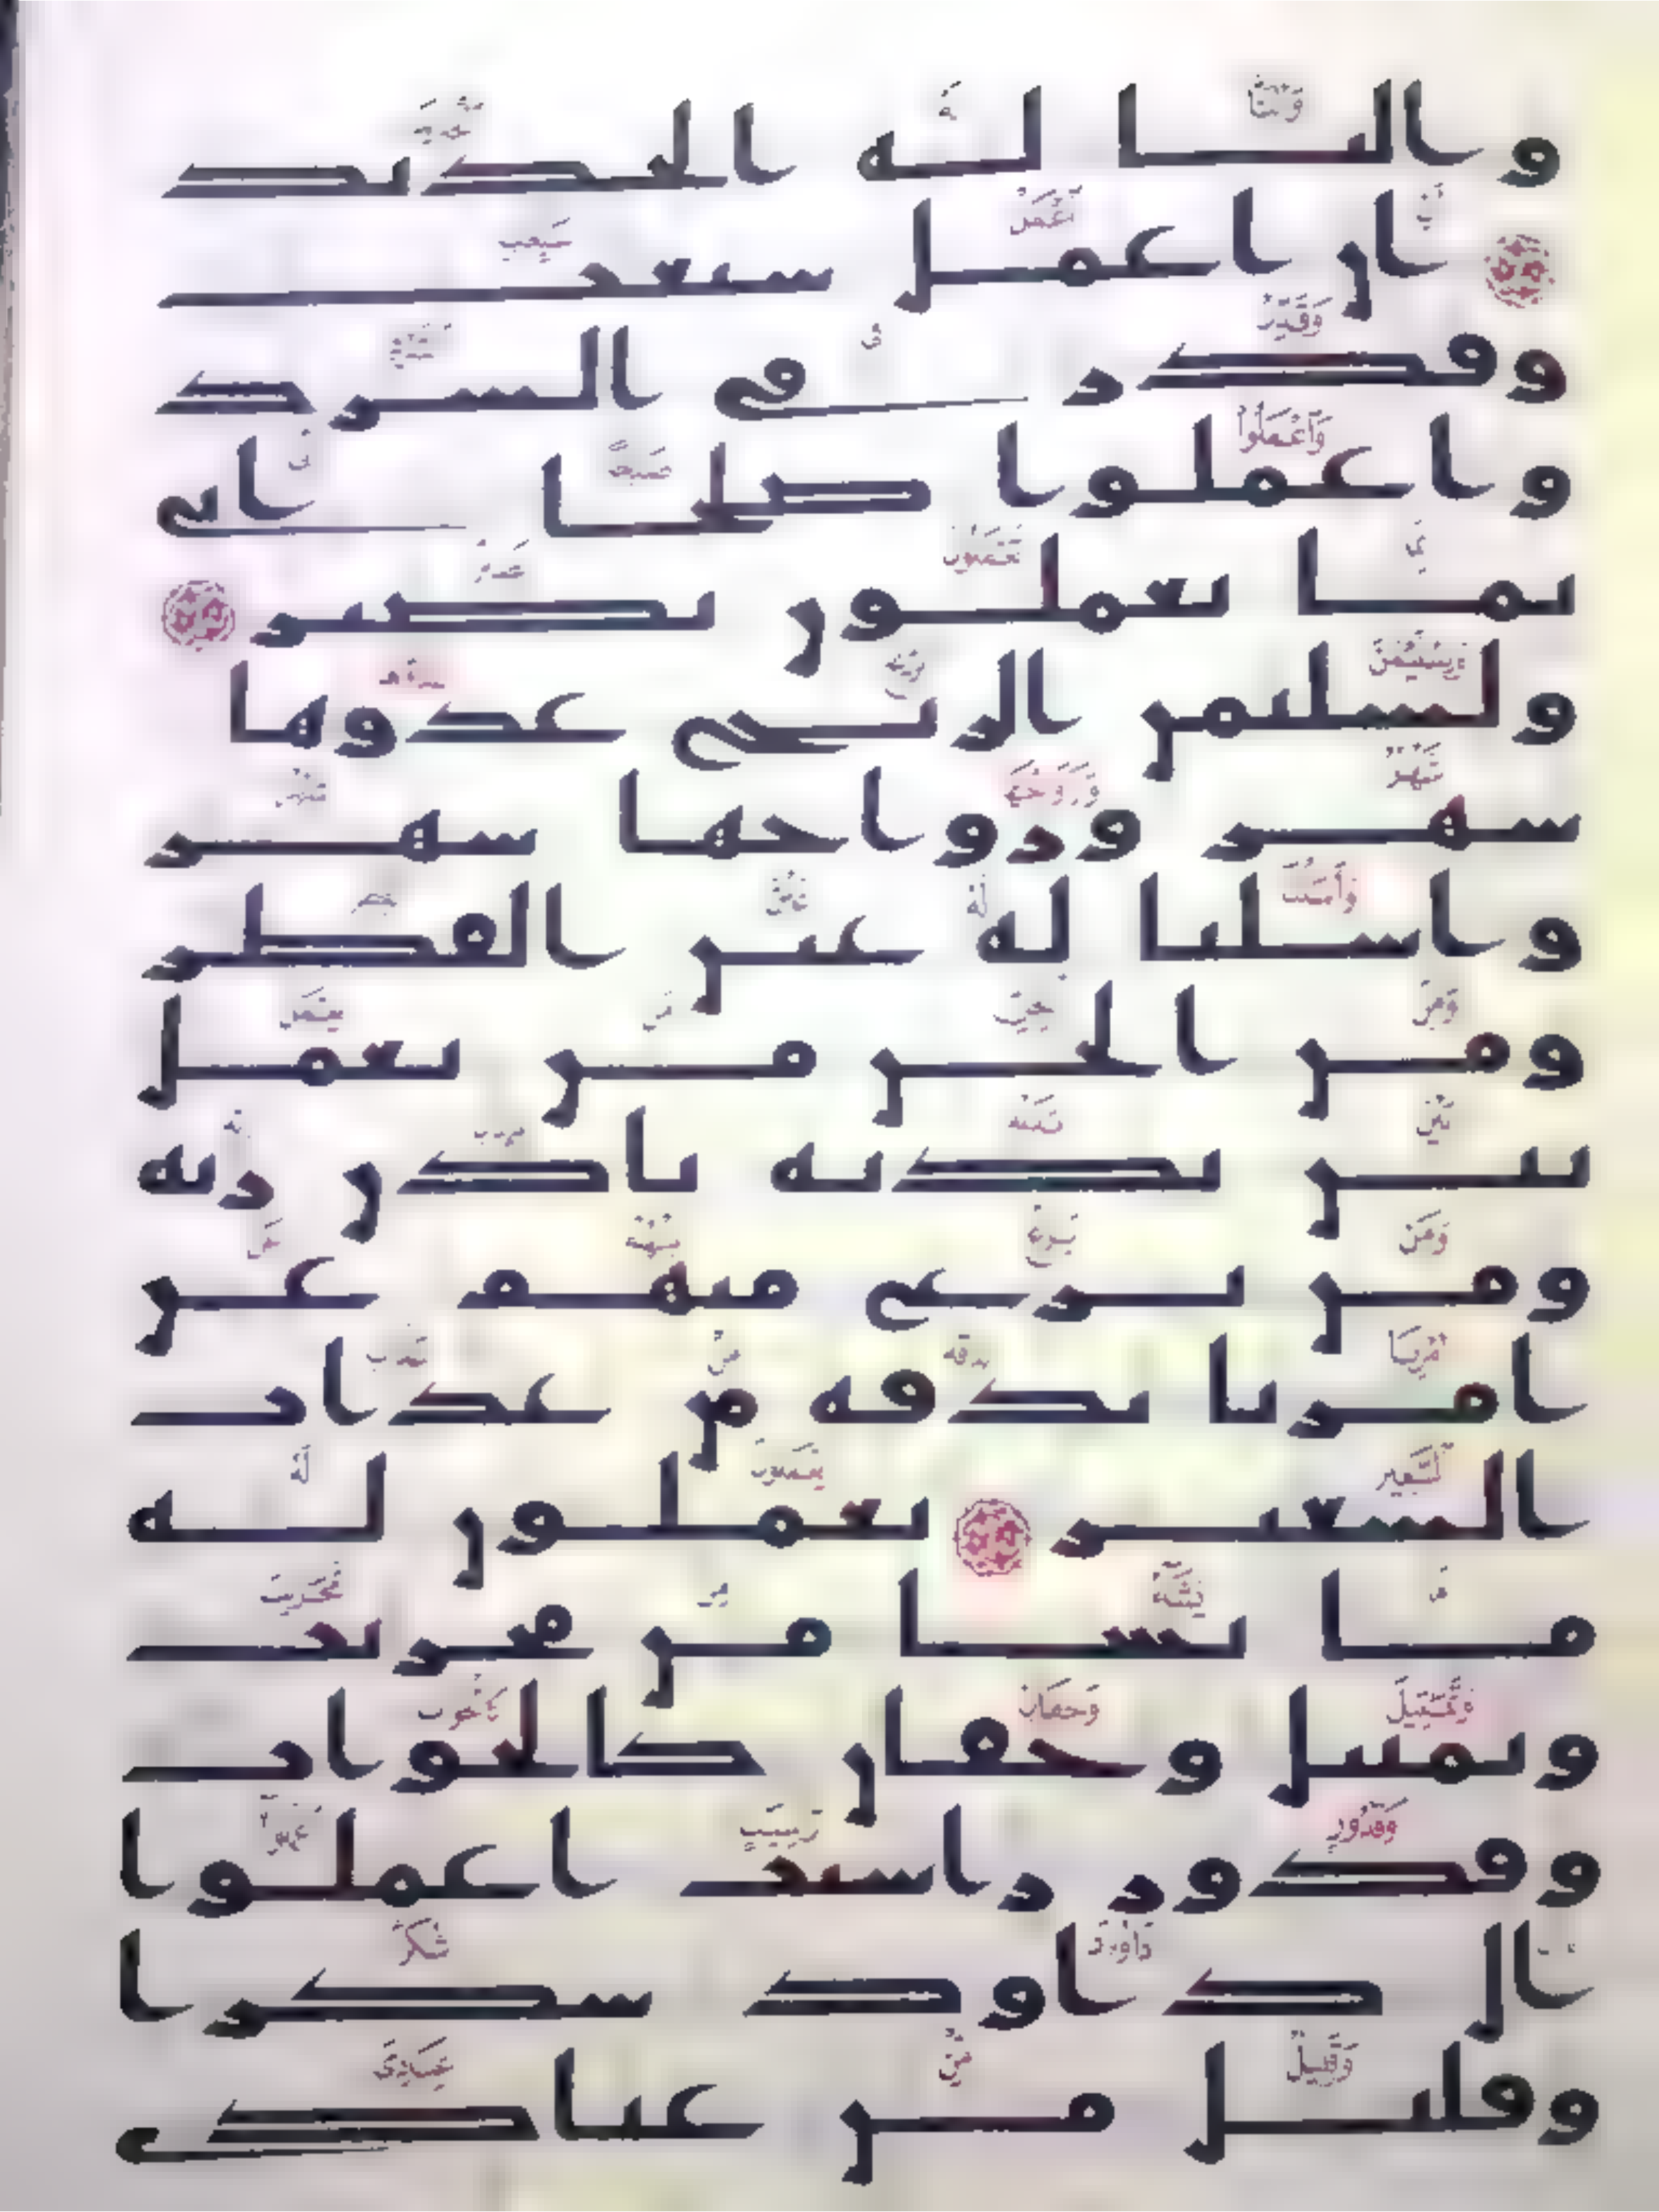 والنا له الحديد
ان اعمل سبغت
وقدر في السرد
واعملوا صلحا اني
بما تعملون بصير
ولسليمن الريح غدوها
شهر ورواحها شهر
واسلنا له عين القطر
ومن الجن من يعمل
بين يديه باذن ربه
ومن يزغ منهم عن
امرنا نذقه من عذاب
السعير يعملون له
ما يشا من محريب
وتمثيل وجفان كالجواب
وقدور راسيت اعملوا
ال داود شكرا
وقليل من عبادي